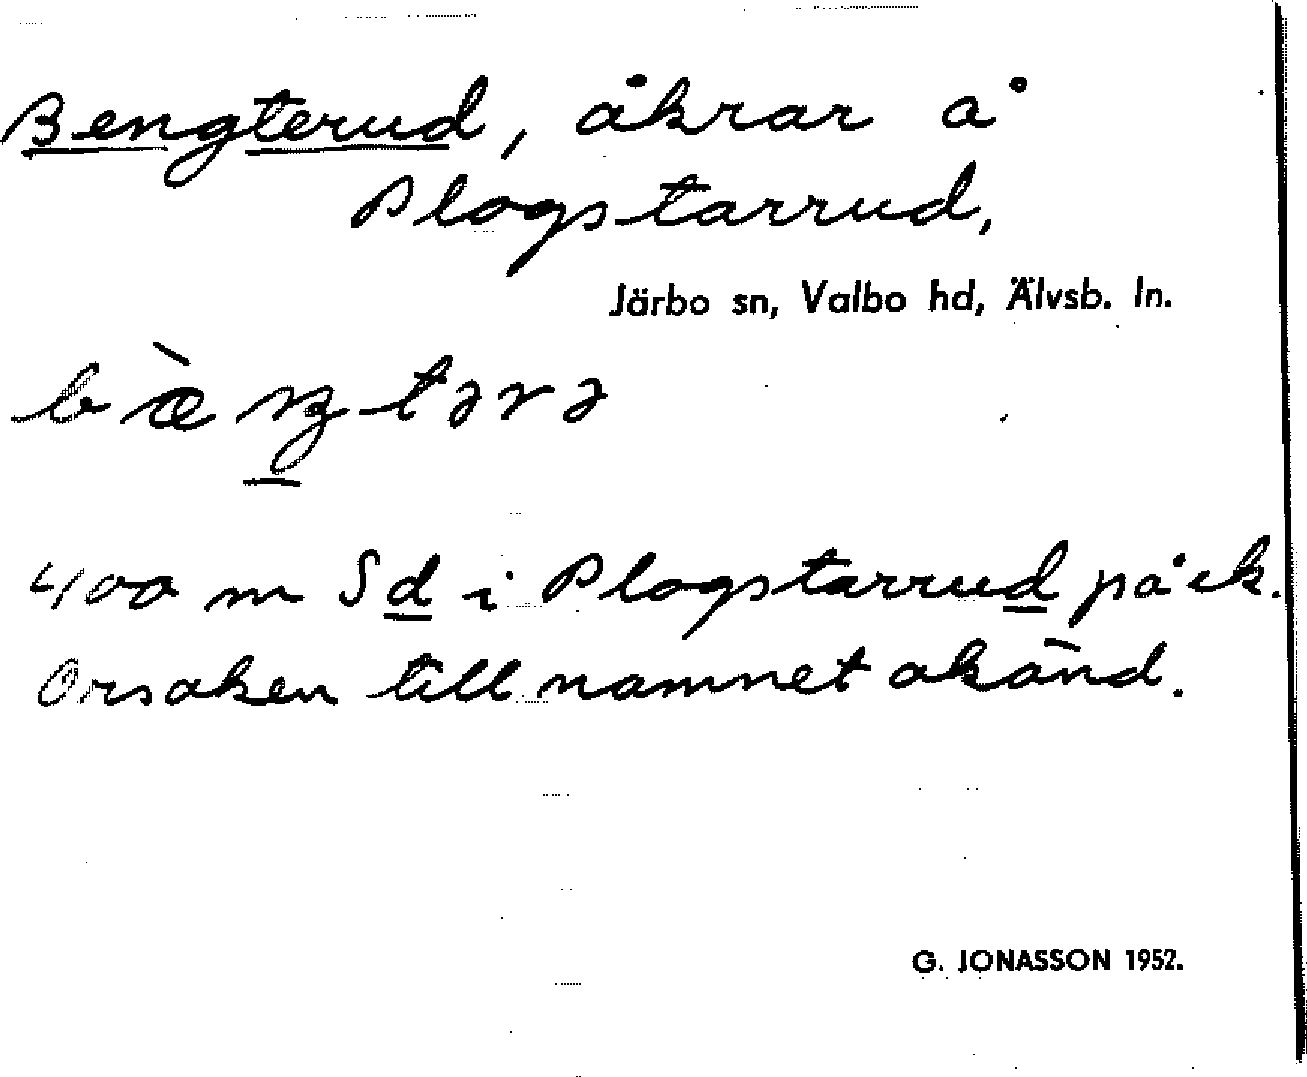 Bengterud, åkrar å
Plogstarrud,
Järbo sn, Valbo hd, Älvsb. ln.
bæ̀ŋtərə
400 m Sd i Plogstarrud på ek.
Orsaken till namnet okänd.
G. JONASSON 1952.